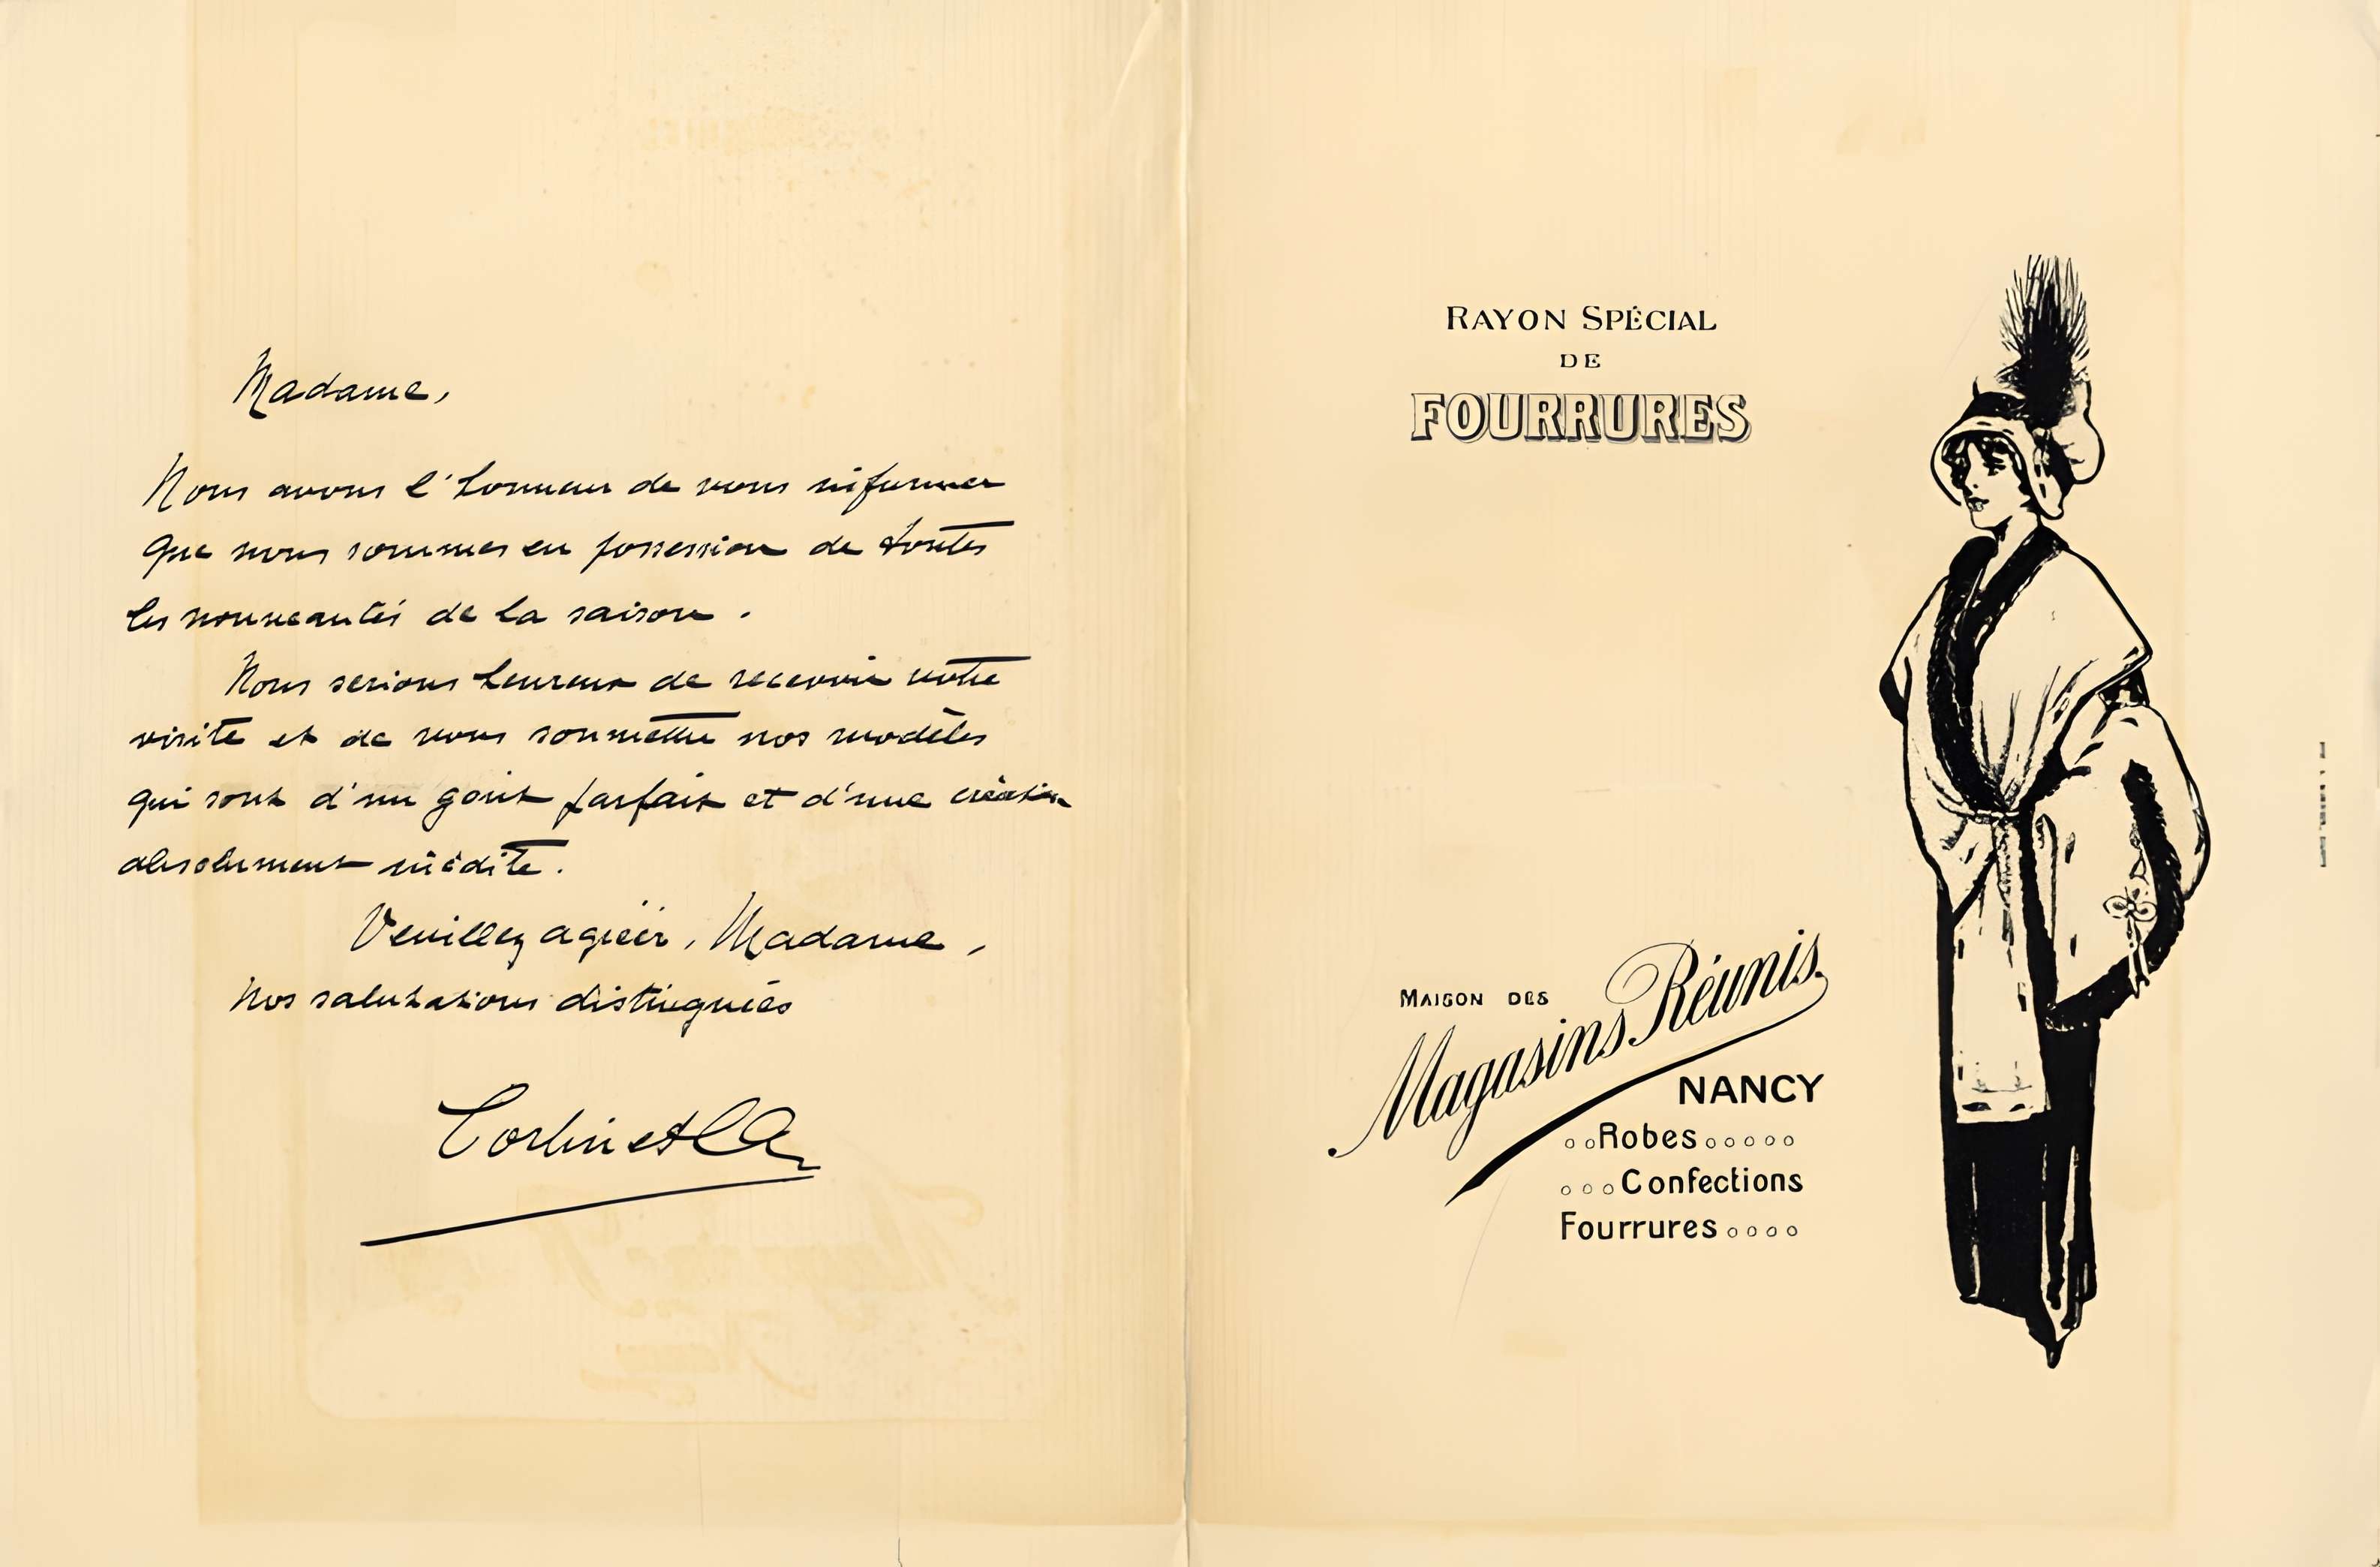 Madame,
Nous avons l'honneur de vous informer
que nous sommes en possession de toutes
les nouveautés de la saison.
Nous serions heureux de recevoir votre
visite et de vous soumettre nos modèles
qui sont d'un goût parfait et d'une création
absolument inédite.
Veuillez agréer, Madame,
nos salutations distinguées
Corbin et Cie
RAYON SPÉCIAL
DE
FOURRURES
MAISON DES
Magasins Réunis
NANCY
Robes
Confections
Fourrures